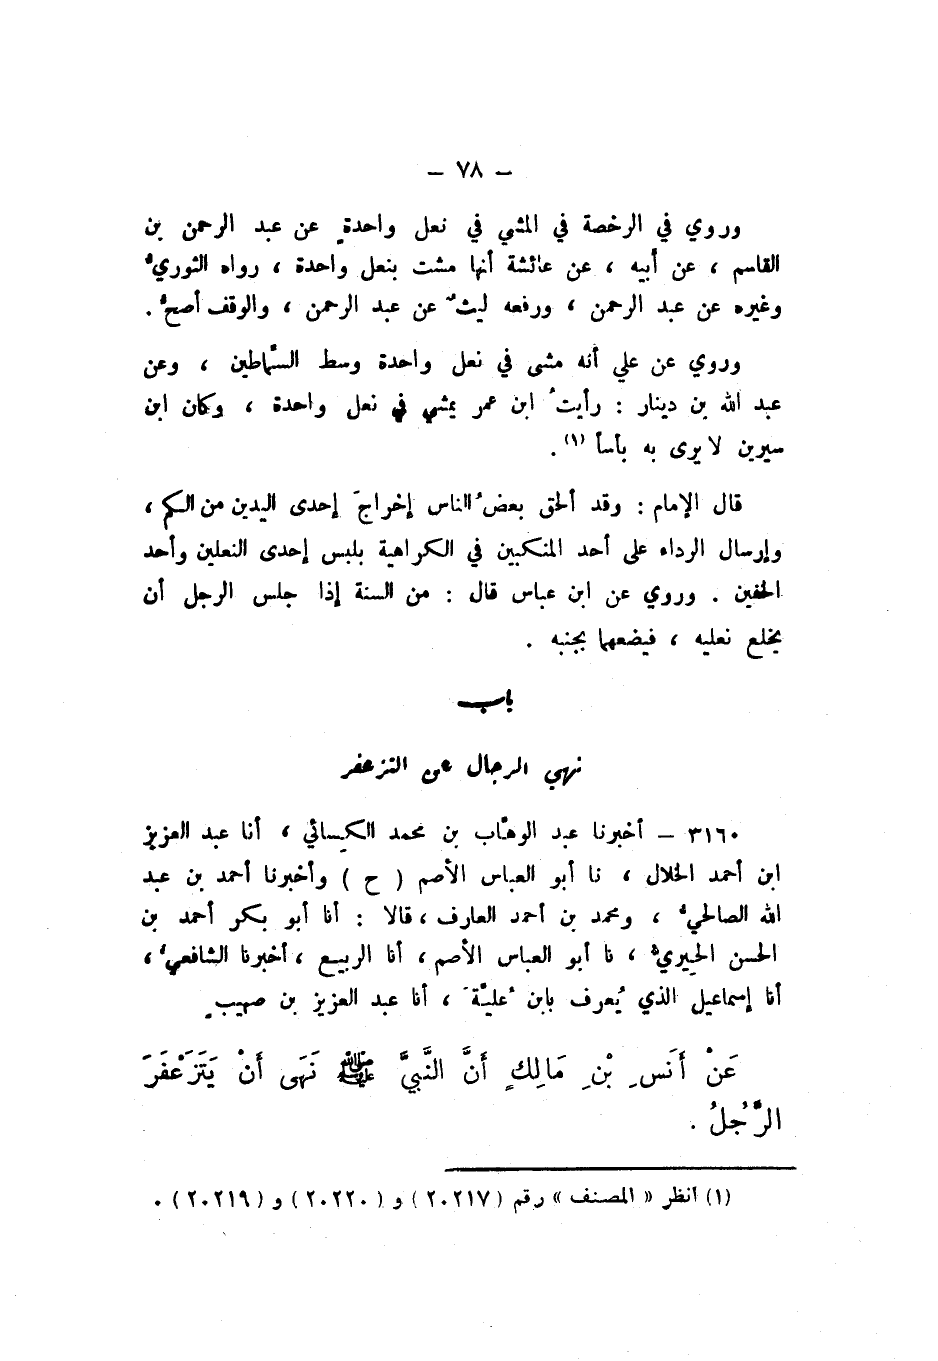 – ٧٨ –
وروي في الرخصة في المشي في نعل واحدةٍ عن عبد الرحمن بن
القاسم ، عن أبيه ، عن عائشة أنها مشت بنعل واحدة ، رواه الثوريُّ
وغيره عن عبد الرحمن ، ورفعه ليثٌ عن عبد الرحمن ، والوقف أصحُّ .
وروي عن علي أنه مشى في نعل واحدة وسط السِّماطين ، وعن
عبد الله بن دينار : رأيتُ ابن عمر يمشي في نعل واحدة ، وكان ابن
سيرين لا يرى به بأساً (١) .
قال الإمام : وقد ألحق بعضُ الناس إخراجَ إحدى اليدين من الكم ،
وإرسال الرداء على أحد المنكبين في الكراهية بلبس إحدى النعلين وأحد
الخفين . وروي عن ابن عباس قال : من السنة إذا جلس الرجل أن
يخلع نعليه ، فيضعهما بجنبه .
باب
نهي الرجال عن التزعفر
٣١٦٠ – أخبرنا عبد الوهَّاب بن محمد الكِسائي ، أنا عبد العزيز
ابن أحمد الخلال ، نا أبو العباس الأصم ( ح ) وأخبرنا أحمد بن عبد
الله الصالحيُّ ، ومحمد بن أحمد العارف ، قالا : أنا أبو بكر أحمد بن
الحسن الحِيريُّ ، نا أبو العباس الأصم ، أنا الربيع ، أخبرنا الشافعيُّ ،
أنا إسماعيل الذي يُعرف بابن عُليَّةَ ، أنا عبد العزيز بن صهيبٍ
عَنْ أَنَسِ بْنِ مَالِكٍ أَنَّ النَّبِيَّ ﷺ نَهَى أَنْ يَتَزَعْفَرَ
الرَّجُلُ .
(١) انظر « المصنف » رقم (٢٠٢١٧) و (٢٠٢٢٠) و (٢٠٢١٩) .